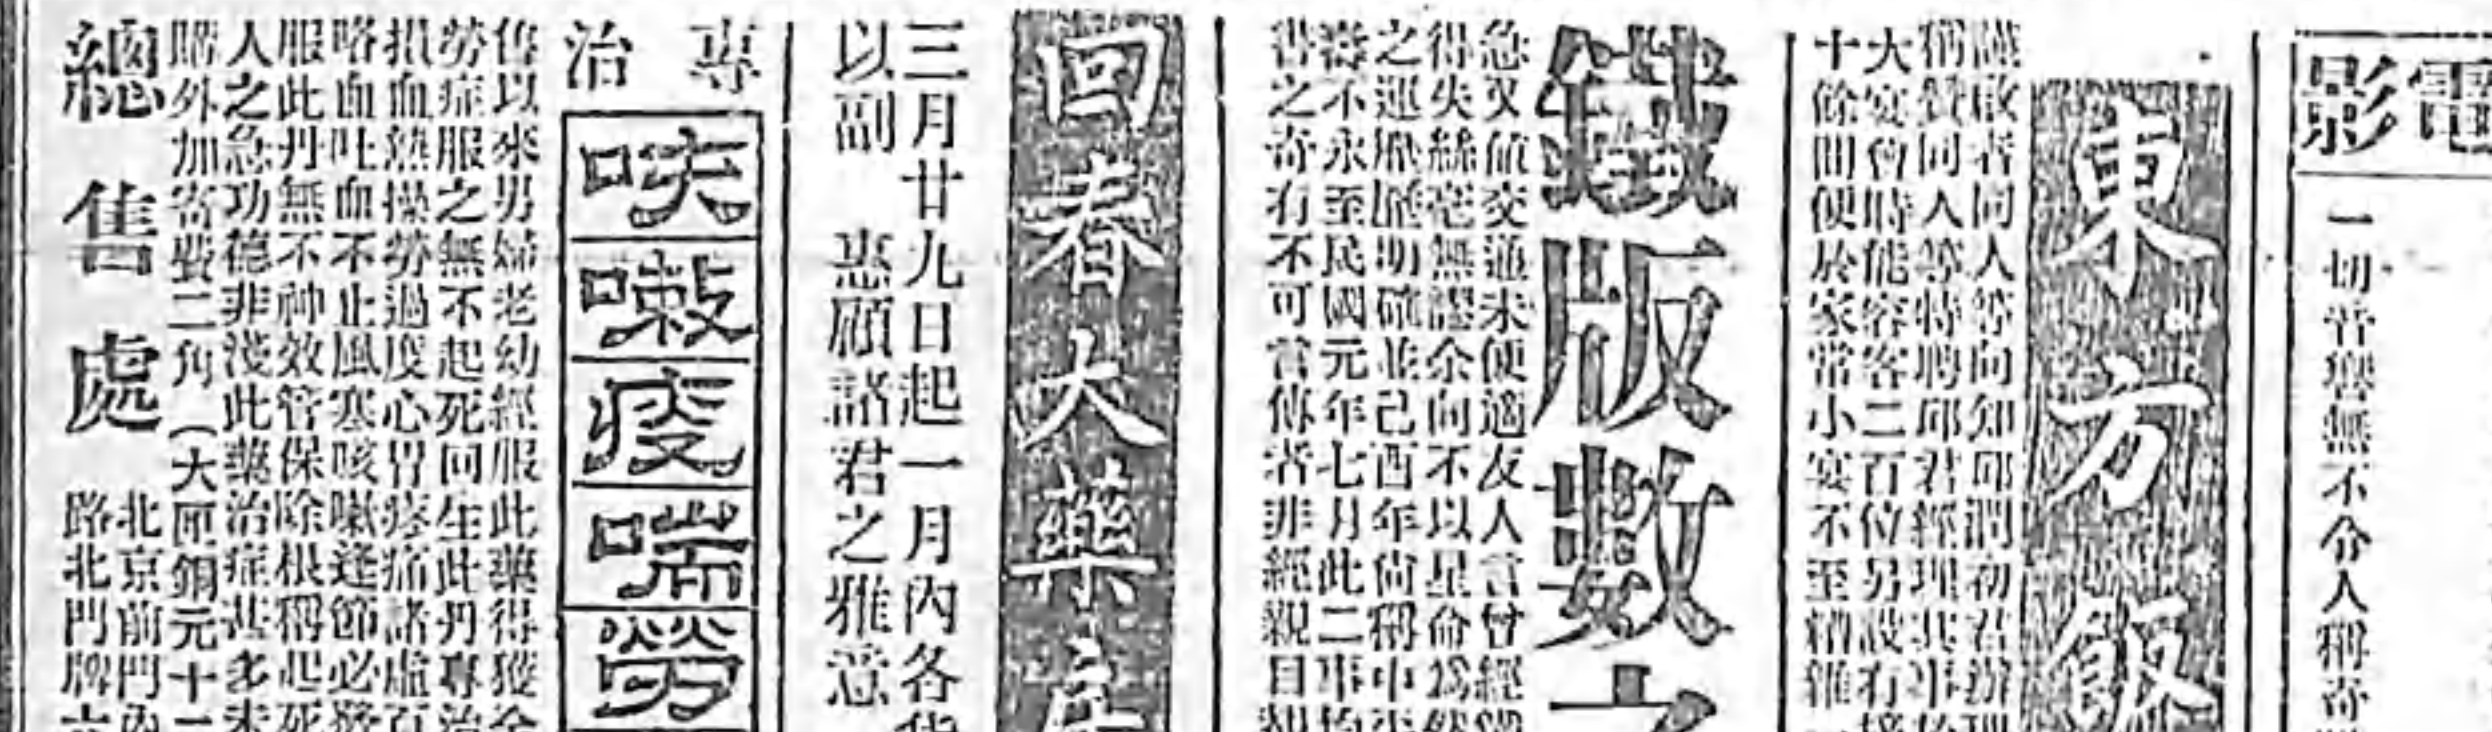 電影
一切音響無不令人稱奇
東方飯
謹啟者同人等向知邱潤初君辦理
稱贊同人等特聘邱君經理其事於
大宴會時能容客二百位另設有接
十餘間便於家常小宴不至糟雜
鐵版數之
急又値交通未便適友人言曾經
得失絲毫無謬余向不以星命爲然
之運歷歷明確並己酉年尙稱中
壽不永至民國元年七月此二事均
書之奇有不可言傳者非經親目
回春大藥房
三月廿九日起一月內各貨
以副 惠顧諸君之雅意
專治
咳
嗽
痰
喘
勞
售以來男婦老幼經服此藥得獲全
勞症服之無不起死回生此丹專治
損血熱操勞過度心胃疼痛諸虛百
咯血吐血不止風寒咳嗽逢節必發
服此丹無不神效管保除根稱起死
人之急功德非淺此藥治症甚多未
購外加寄費二角（大匣銅元十二
總售處
北京前門內
路北門牌六